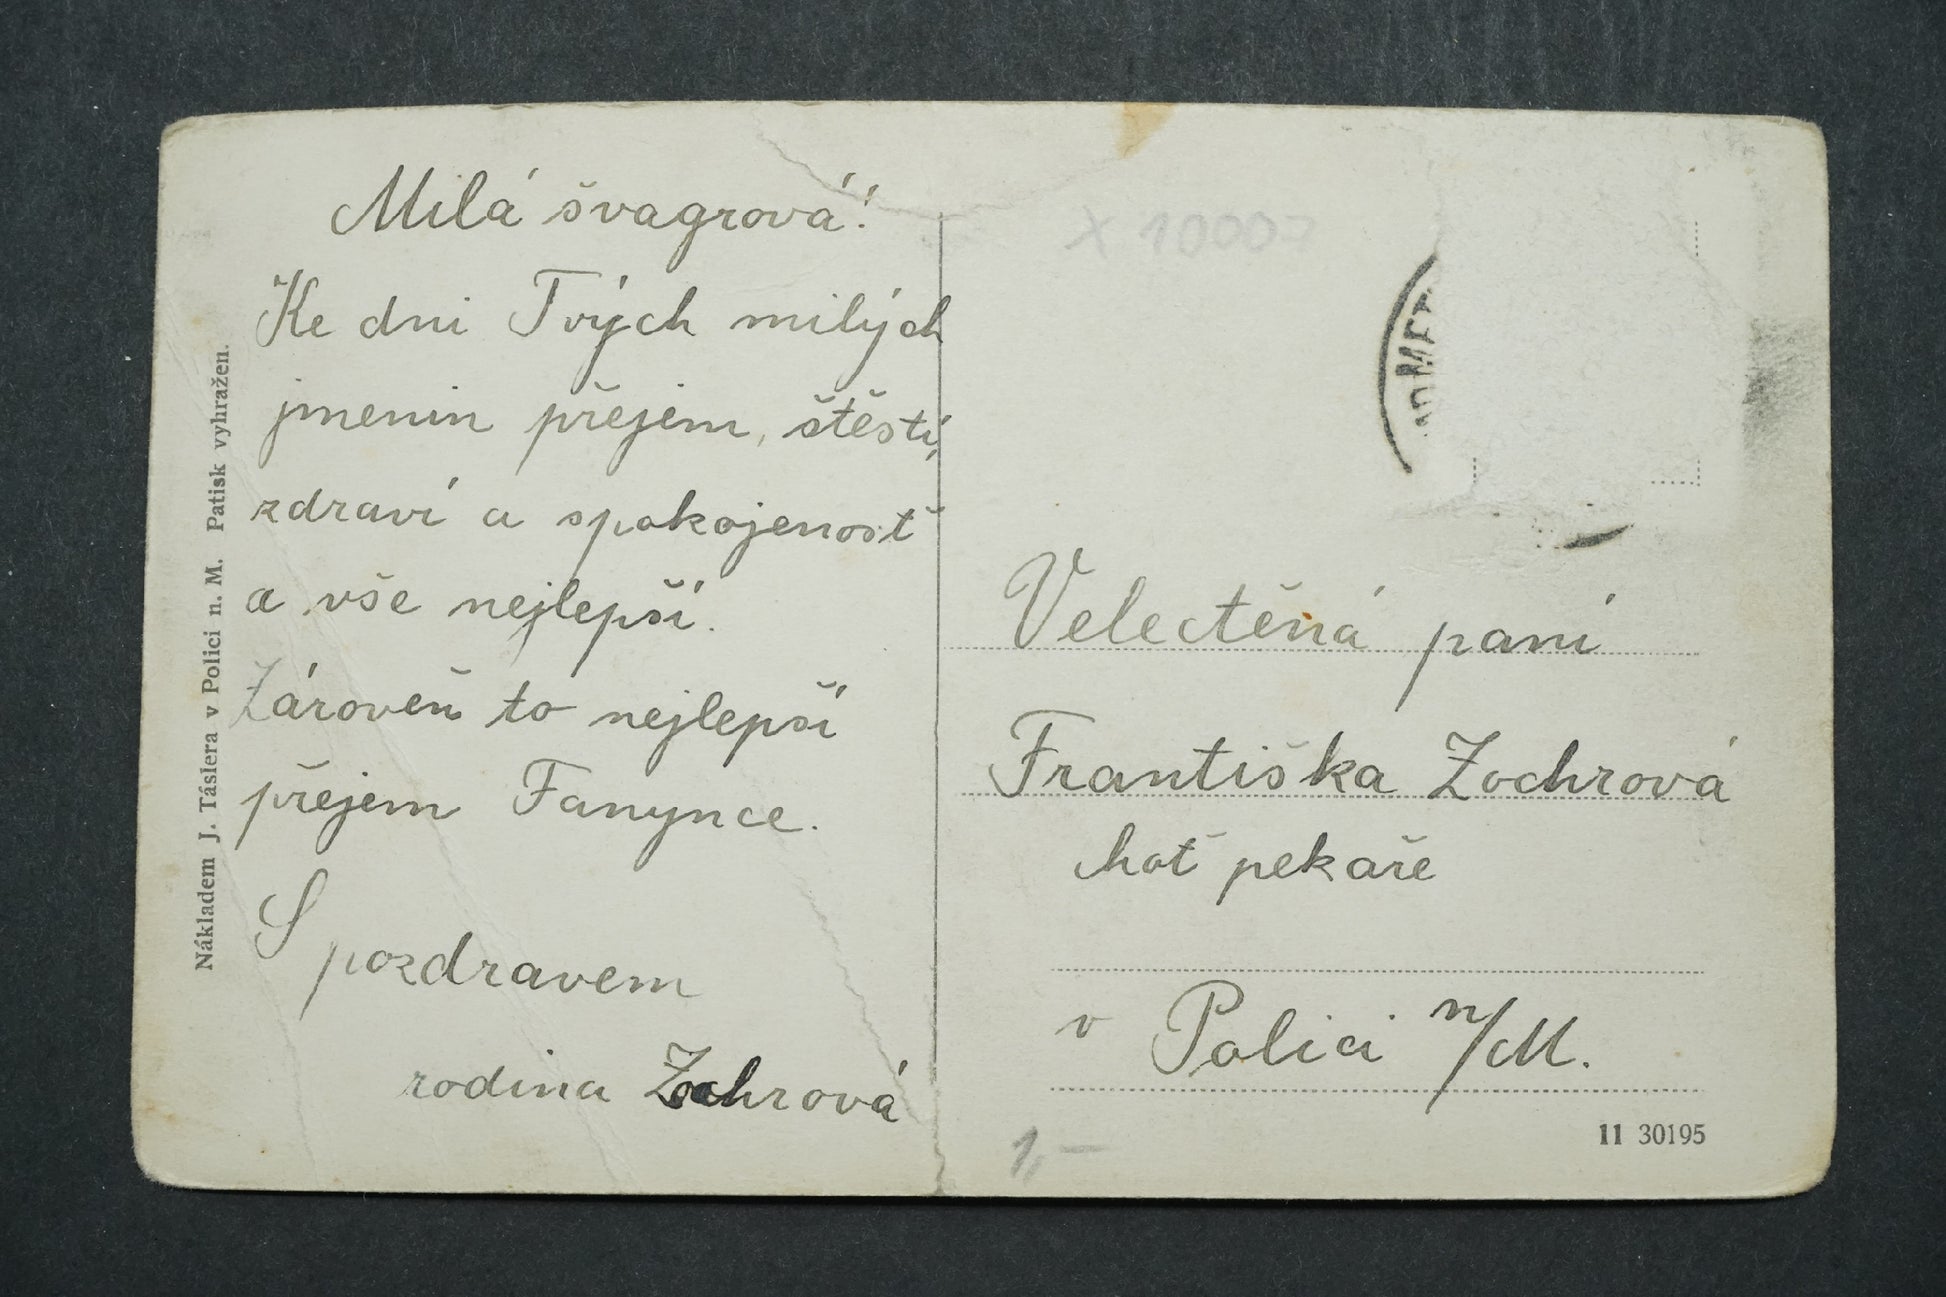 Milá švagrová!
Ke dni Tvých milých
jmenin přejem, štěstí,
zdraví a spokojenosť
a vše nejlepší.
Zároveň to nejlepší
přejem Fanynce.
S pozdravem
rodina Zochrová
Nákladem J. Táslera v Polici n. M. Patisk vyhražen.
X 10007
Velectěná paní
Františka Zochrová
choť pekaře
v Polici n/M.
11 30195
1,-